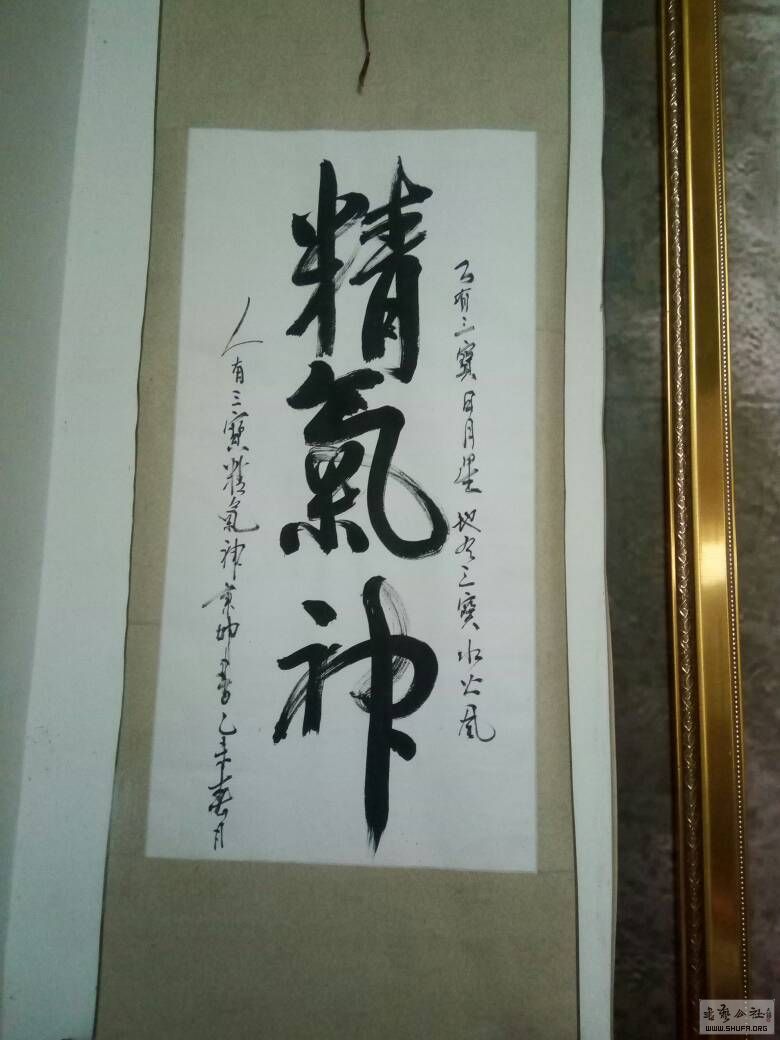 精氣神
天有三寶日月星地有三寶水火風
人有三寶精氣神 乙未春月
书艺公社
WWW.SHUFA.ORG